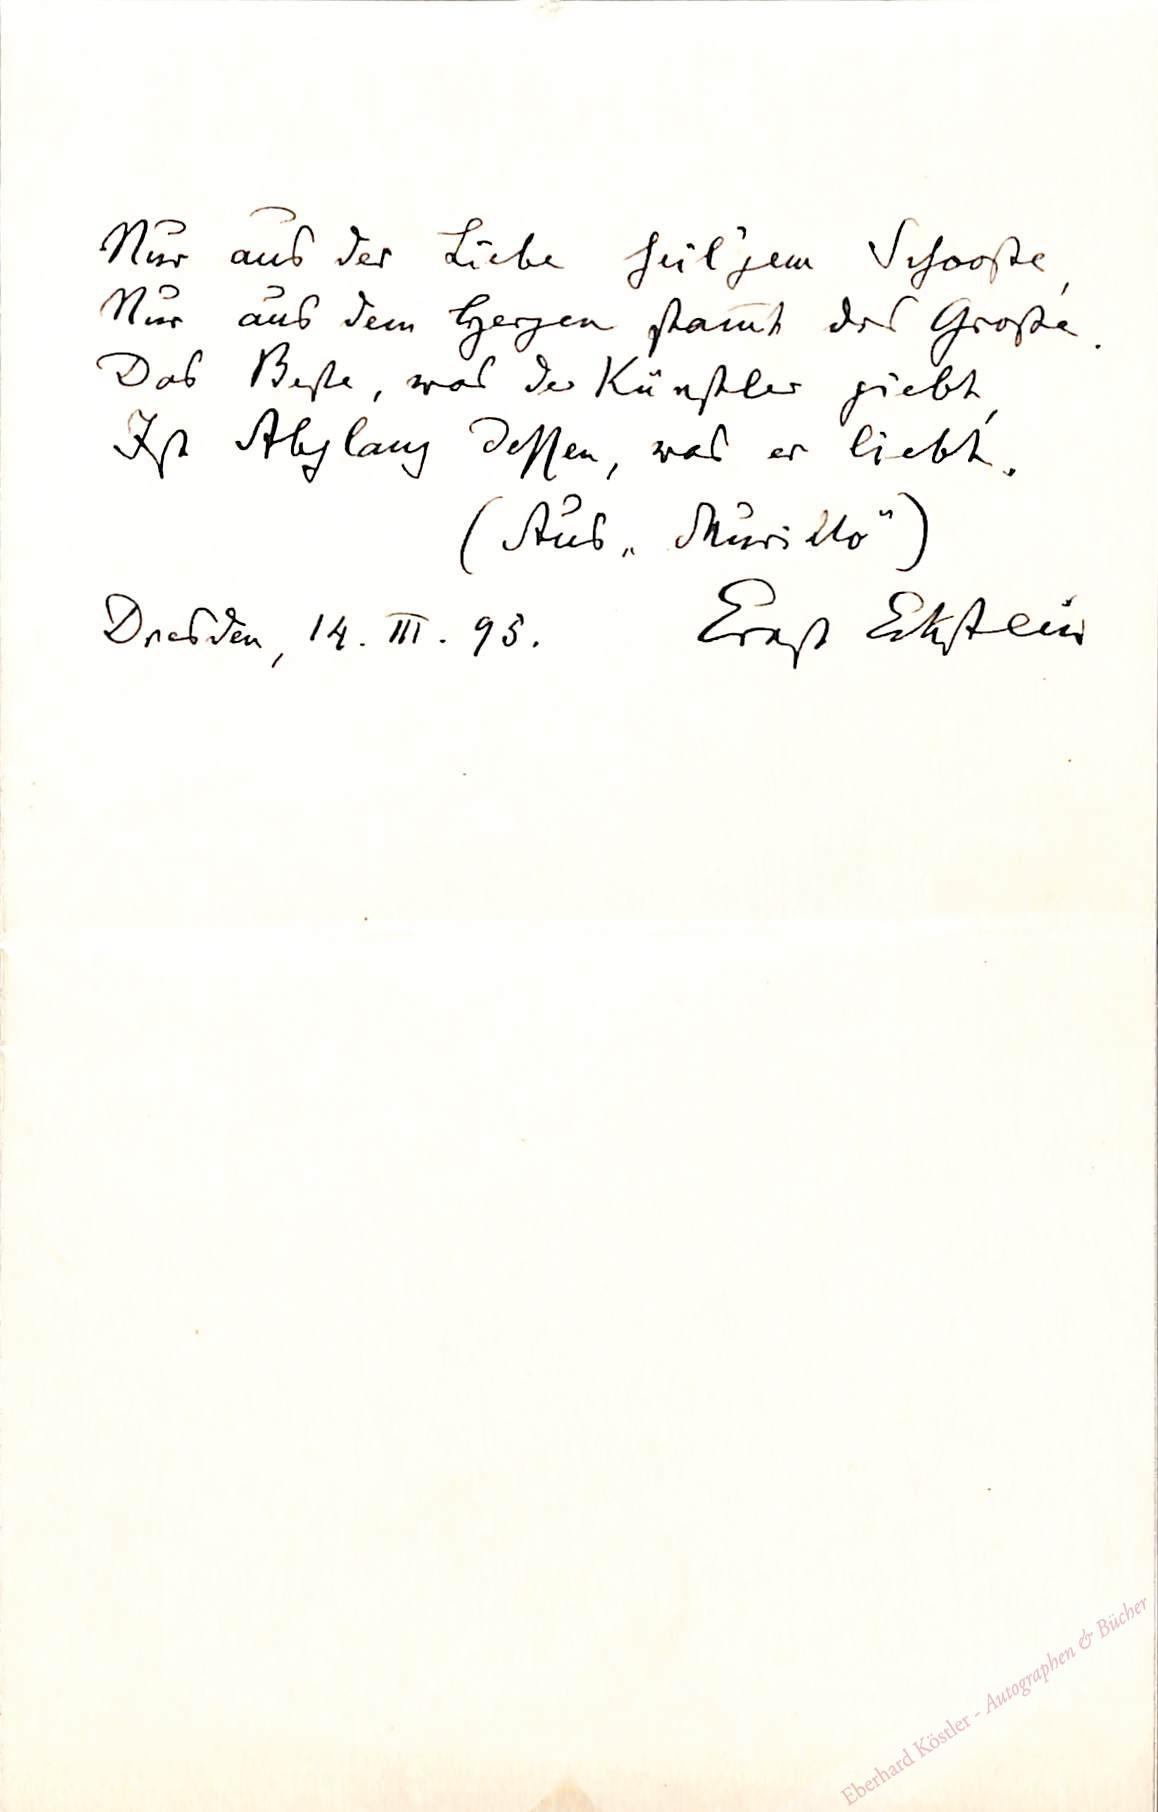 Nur aus der Liebe heil'gem Schooße,
Nur aus dem Herzen stam̄t das Große.
Das Beste, was der Künstler giebt,
Ist Abglanz dessen, was er liebt.
(Aus „Murillo“)
Dresden, 14. III. 95. Ernst Eckstein
Eberhard Köstler - Autographen & Bücher